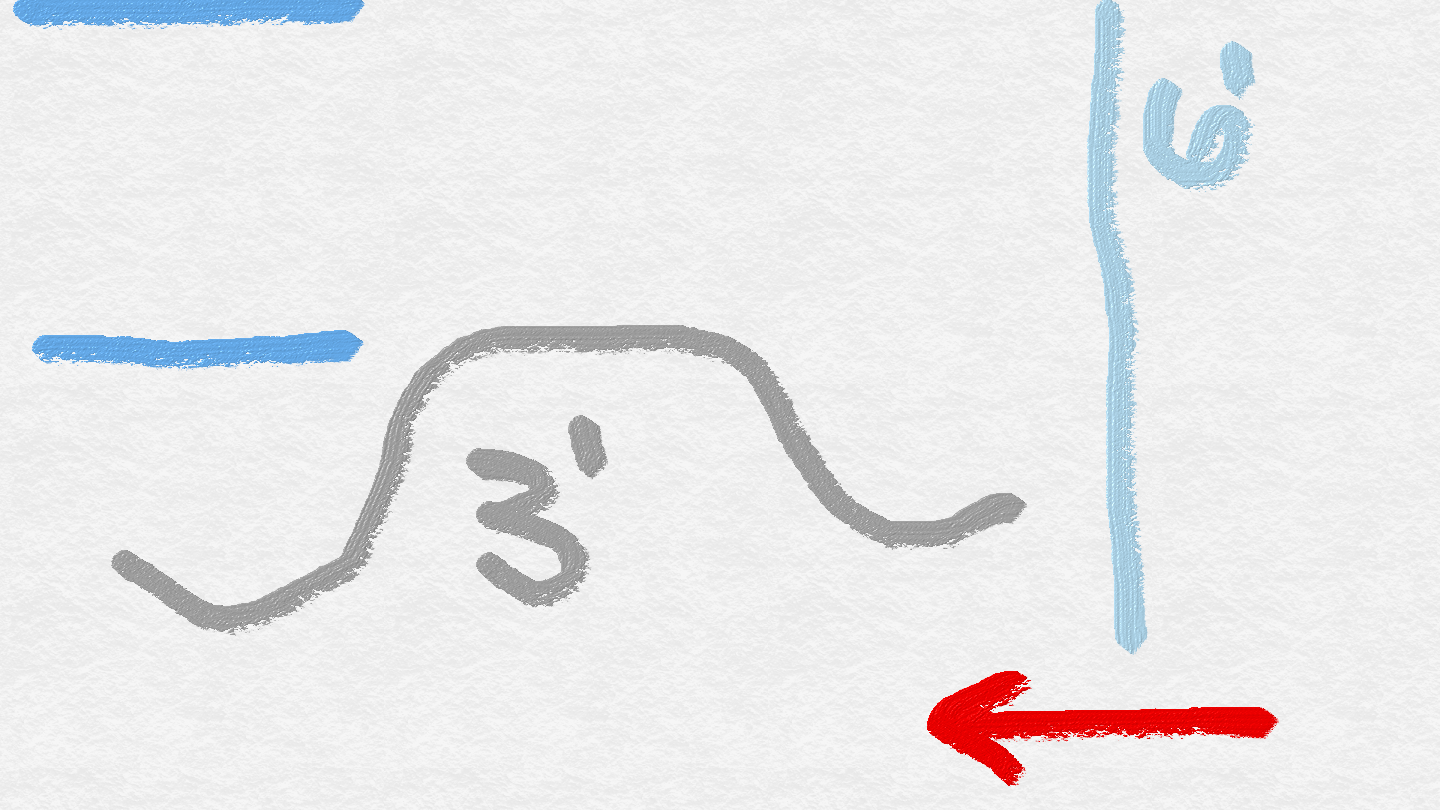 6'
3'